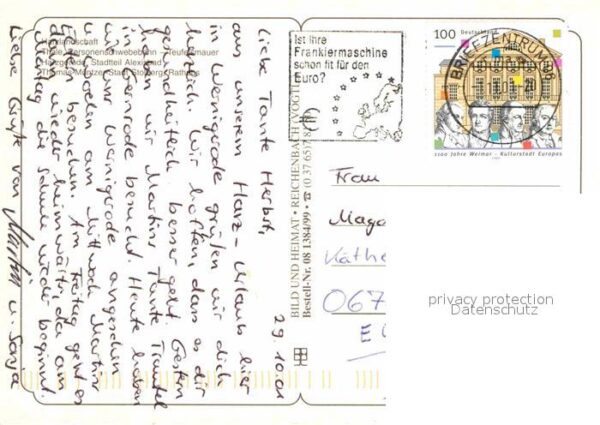 Harzlandschaft
Thale, Personenschwebebahn Teufelsmauer
Harzgerode, Stadtteil Alexisbad
Thomas-Müntzer-Stadt Stolberg, Rathaus
29.10.01
Liebe Tante Herbst,
aus unserem Harz-Urlaub hier
in Wernigerode grüßen wir dich
herzlich. Wir hoffen, dass es dir
gesundheitlich besser geht. Gestern
haben wir Martins Tante
in Wernigerode besucht. Heute haben
wir uns Wernigerode angesehen
und wollen am Mittwoch Martins
besuchen. Am Freitag geht es
wieder heimwärts, da am
Montag die Schule wieder beginnt.
Liebe Grüße von Martin u. Sonja
BILD UND HEIMAT · REICHENBACH (VOGTL
Bestell-Nr. 08 1384/99 · ☎ (0 37 65)
Ist Ihre
Frankiermaschine
schon fit für den
Euro?
BRIEFZENTRUM 06
100 Deutschland
1100 Jahre Weimar - Kulturstadt Europas
Frau
Mag
Käthe
067
privacy protection
Datenschutz